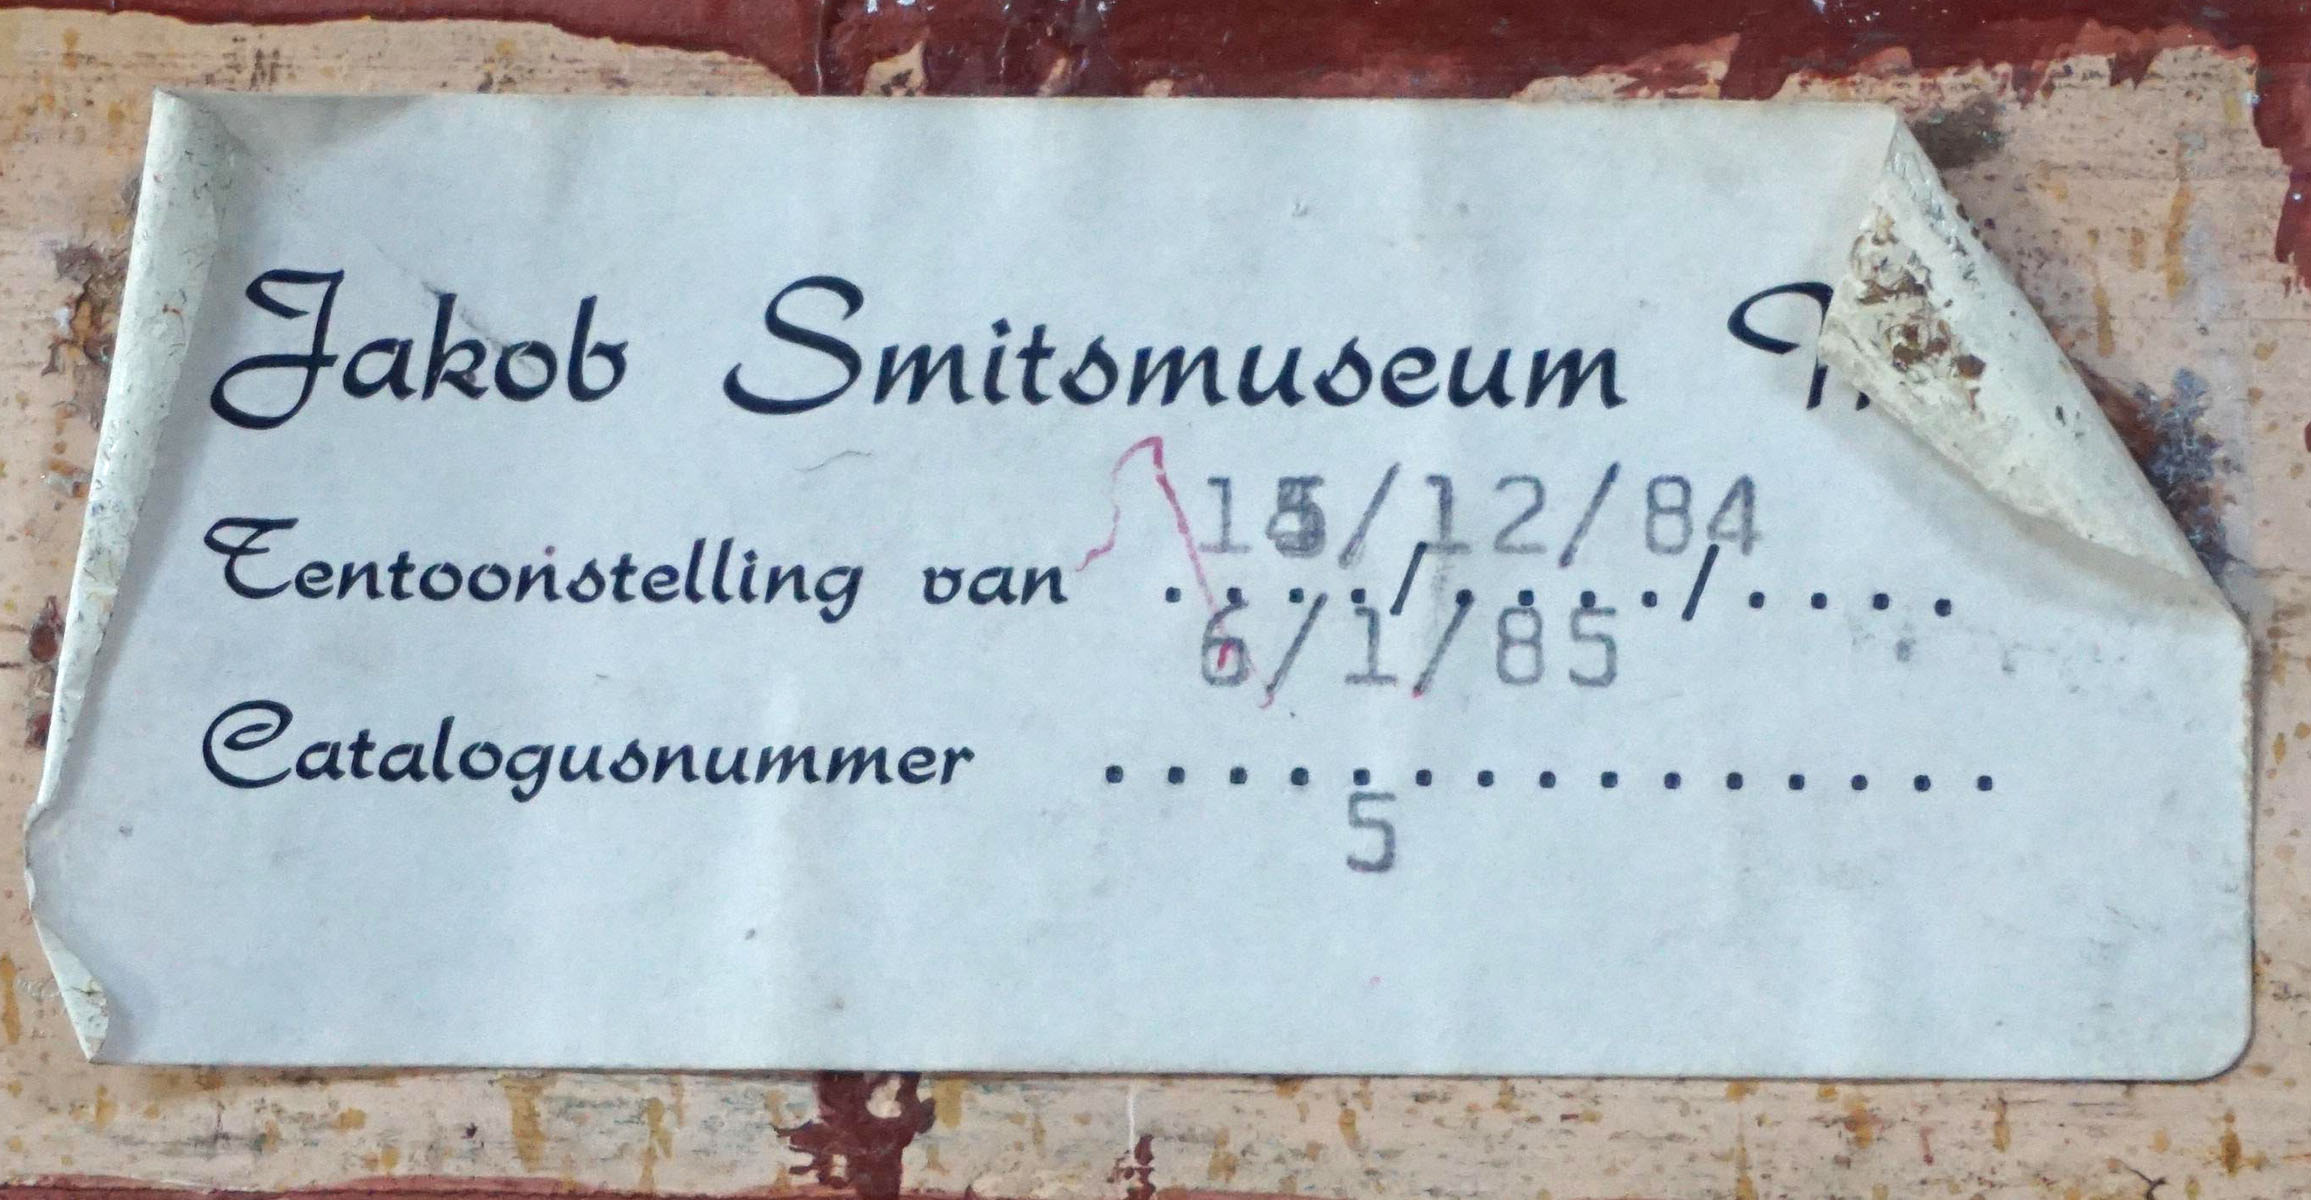 Jakob Smitsmuseum
15/12/84
Tentoonstelling van ..../..../....
6/1/85
Catalogusnummer ...............
5